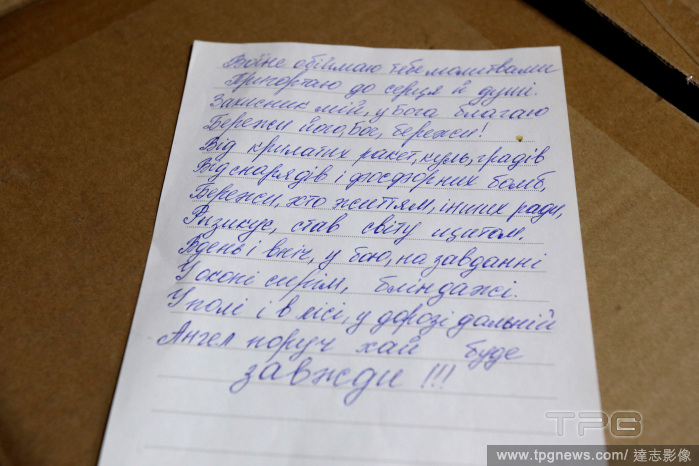 Воїне обіймаю тебе молитвами
Пригортаю до серця й душі.
Захисник мій, у бога благаю
Бережи його, боє, бережи!
Від крилатих ракет, куль, градів
Від снарядів і фосфорних бомб,
Бережи, хто життям, інших ради,
Ризикує, став світу щитом.
Вдень і вніч, у бою, на завданні
У окопі сирім, бліндажі.
У полі і в лісі, у дорозі дальній
Ангел поруч хай буде
завжди!!!
TPG
www.tpgnews.com/ 達志影像